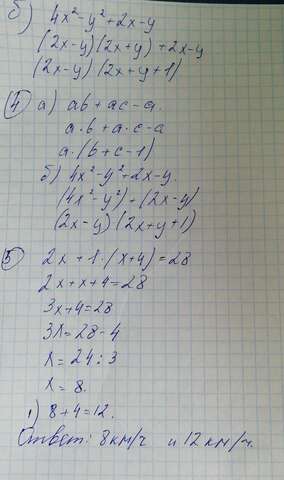 б) 4x²-y²+2x-y
(2x-y)(2x+y)+2x-y
(2x-y)(2x+y+1)
④ а) ab+ac-a.
a·b+a·c-a
a·(b+c-1)
б) 4x²-y²+2x-y.
(4x²-y²)+(2x-y)
(2x-y)(2x+y+1)
⑤ 2x+1·(x+4)=28
2x+x+4=28
3x+4=28
3x=28-4
x=24:3
x=8.
1) 8+4=12.
Ответ: 8км/ч и 12км/ч.